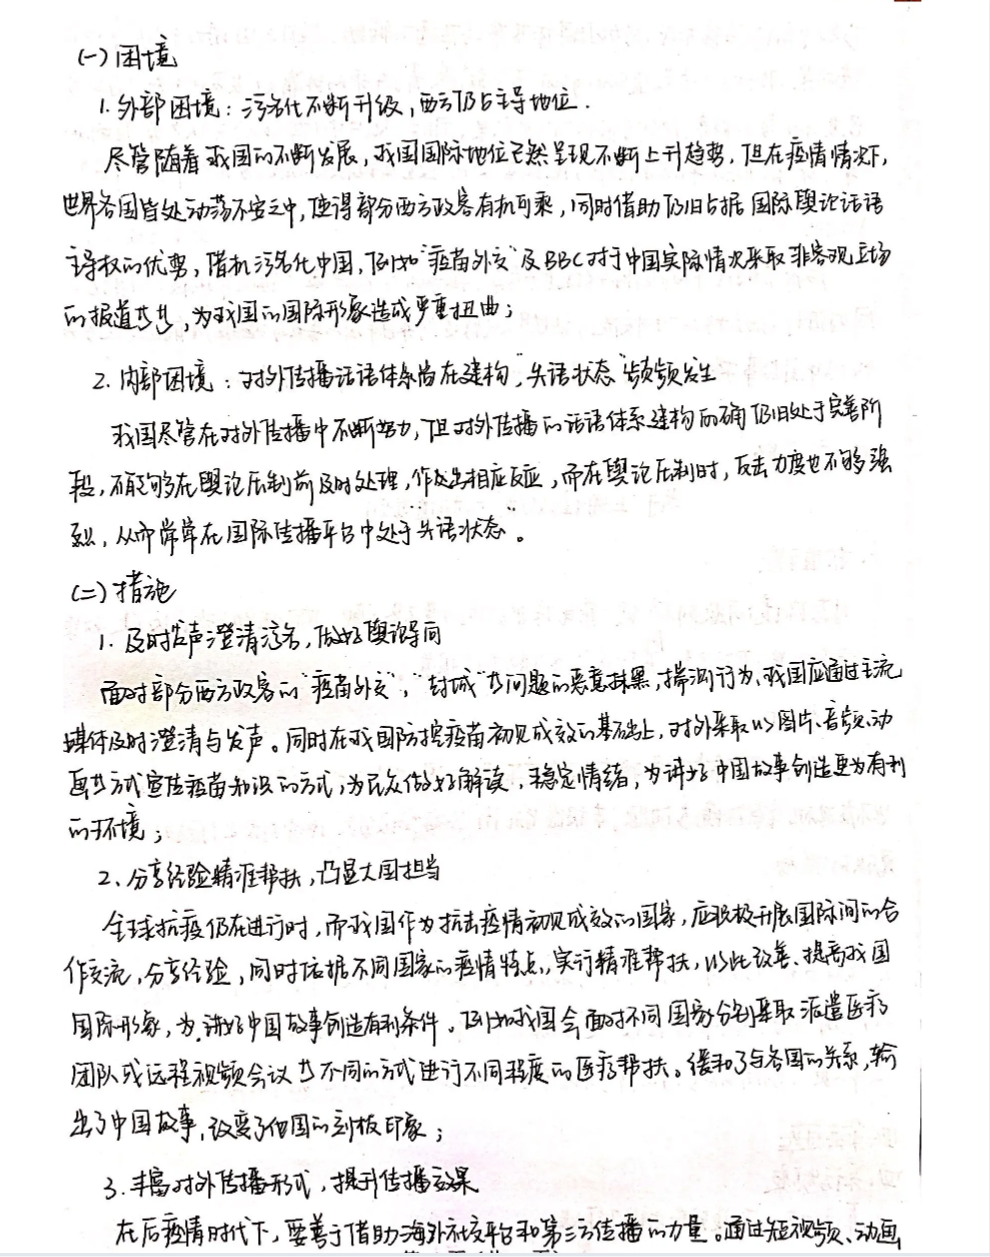 (一)困境
1. 外部困境：污名化不断升级，西方仍占主导地位.
尽管随着我国的不断发展，我国国际地位已然呈现不断上升趋势，但在疫情情况下，
世界各国皆处动荡不安之中，使得部分西方政客有机可乘，同时借助仍旧占据国际舆论话语
主导权的优势，借机污名化中国，例如“疫苗外交”及BBC对于中国实际情况采取非客观立场
的报道等等，为我国的国际形象造成严重扭曲；
2. 内部困境：对外传播话语体系尚在建构，“失语状态”频频发生
我国尽管在对外传播中不断努力，但对外传播的话语体系建构的确仍旧处于完善阶
段，不足够在舆论压制前及时处理，作出相应反应，而在舆论压制时，反击力度也不够强
烈，从而常常在国际传播平台中处于“失语状态”。
(二)措施
1. 及时发声澄清污名，做好舆论导向
面对部分西方政客的“疫苗外交”，“封城”等问题的恶意抹黑，揣测行为、我国应通过主流
媒体及时澄清与发声。同时在我国防控疫苗初见成效的基础上，对外采取以图片、音频、动
画等方式宣传疫苗知识的方式，为民众做好解读，稳定情绪，为讲好中国故事创造更为有利
的环境；
2、分享经验精准帮扶，凸显大国担当
全球抗疫仍在进行时，而我国作为抗击疫情初见成效的国家，应积极开展国际间的合
作交流，分享经验，同时依据不同国家的疫情特点，实行精准帮扶，以此改善、提高我国
国际形象，为讲好中国故事创造有利条件。例如我国会面对不同国家分别采取派遣医疗
团队或远程视频会议等不同的方式进行不同程度的医疗帮扶。缓和了与各国的关系，输
出了中国故事，改变了他国的刻板印象；
3. 丰富对外传播形式，提升传播效果
在后疫情时代下，要善于借助海外社交平台和第三方传播的力量。通过短视频、动画